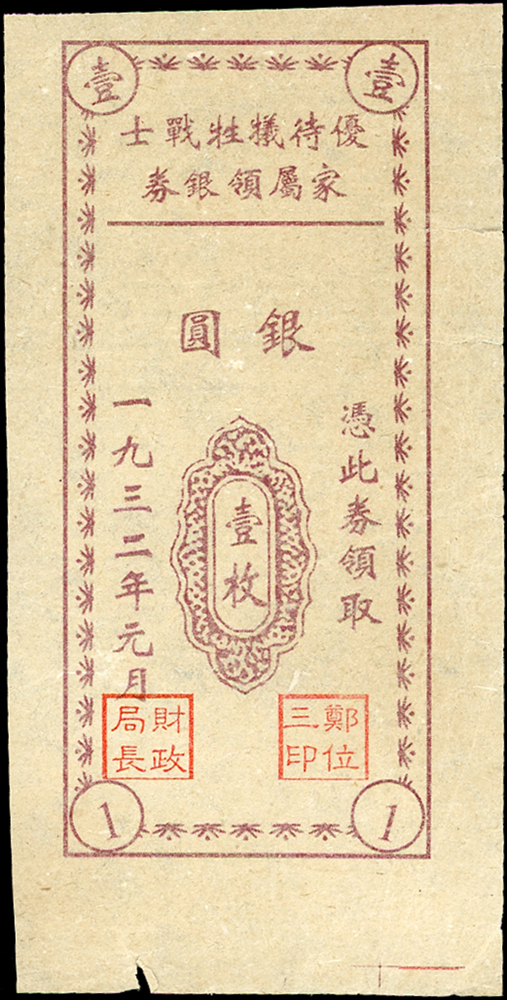 壹 壹
優待犧牲戰士
家屬領銀券
銀圓
憑此券領取
壹枚
一九三二年元月
鄭位三印
財政局長
1 1